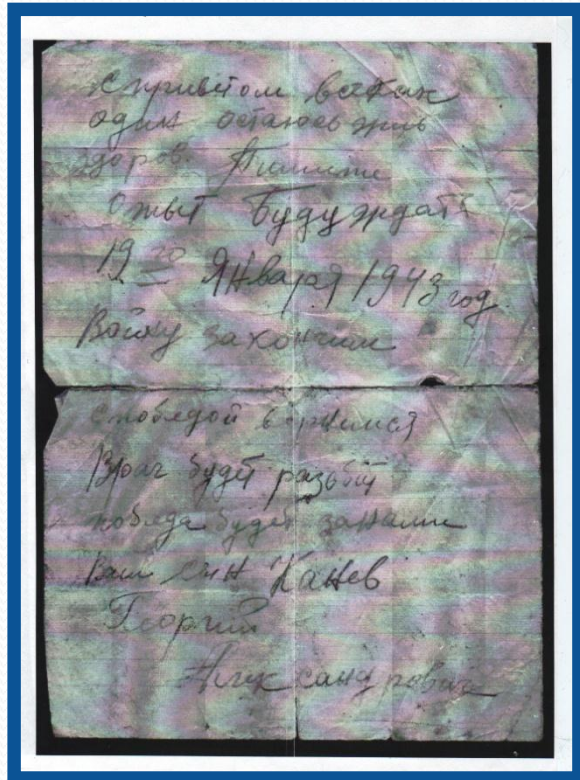 с приветом
один остаюсь жив
здоров. Пишите
ответ Буду ждать
19 го Января 1943 год.
Войну закончим
с победой вернимся
Враг будет разбит
победа будет занами
Ваш сын Канев
Георгий
Александрович